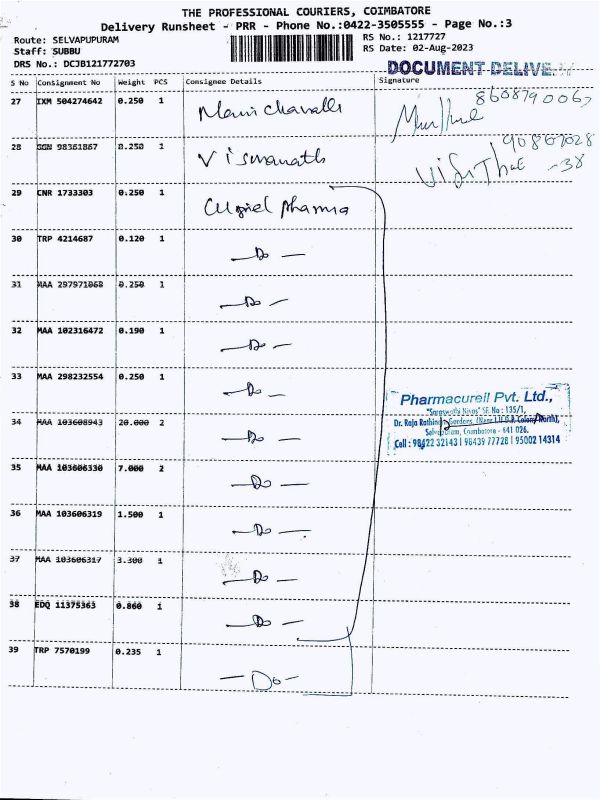 THE PROFESSIONAL COURIERS, COIMBATORE
Delivery Runsheet - PRR - Phone No.:0422-3505555 - Page No.:3
Route: SELVAPUPURAM
Staff: SUBBU
DRS No.: DCJB121772703
RS No.: 1217727
RS Date: 02-Aug-2023
DOCUMENT DELIVE
S No Consignment No Weight PCS Consignee Details Signature
27 IXM 504274642 0.250 1
8608790067
28 SGN 98361867 0.250 1 Viswanath
29 CNR 1733303 0.250 1
30 TRP 4214687 0.120 1 — Do —
31 MAA 297971068 0.250 1 — Do —
32 MAA 102316472 0.190 1 — Do —
33 MAA 298232554 0.250 1 — Do —
34 MAA 103608943 20.000 2 — Do —
35 MAA 103606330 7.000 2 — Do —
36 MAA 103606319 1.500 1 — Do —
37 MAA 103606317 3.300 1 — Do —
38 EDQ 11375363 0.860 1 — Do —
39 TRP 7570199 0.235 1 — Do —
Pharmacureil Pvt. Ltd.,
"Saraswathi Nivas" SF. No : 135/1,
Dr. Raja Rathinam Gardens, (Near L.I.G.P. Colony North),
Selvapuram, Coimbatore - 641 026.
Cell : 98422 32143 | 98439 77728 | 95002 14314